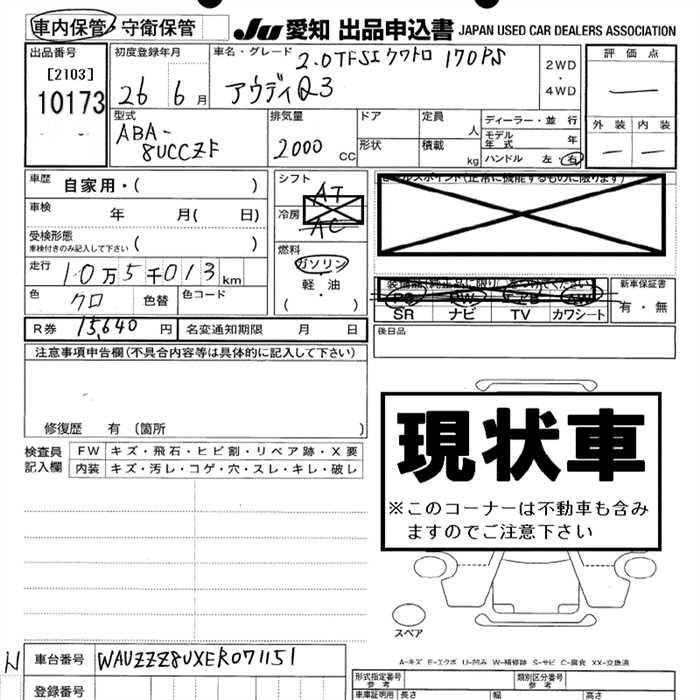 車内保管・守衛保管
JU 愛知 出品申込書 JAPAN USED CAR DEALERS ASSOCIATION
出品番号
[2103]
10173
初度登録年月
26 6月
車名・グレード
2.0TFSIクワトロ 170PS
アウディQ3
2WD
・
4WD
評価点
外装 内装
型式
ABA-
8UCCZF
排気量
2000 CC
ドア
形状
定員 人
積載 kg
ディーラー・並行
モデル年式 年
ハンドル 左・右
車歴 自家用・( )
車検 年 月( 日)
受検形態
車検付きのみ記入して下さい ( )
走行 10万5千013km
色 クロ 色替 色コード
R券 15,640円 名変通知期限 月 日
シフト
AT
冷房
AC
燃料
ガソリン
軽・油
( )
SR ナビ TV カワシート
新車保証書
有・無
後日品
注意事項申告欄(不具合内容等は具体的に記入して下さい)
修復歴 有(箇所 )
検査員
記入欄
FW キズ・飛石・ヒビ割・リペア跡・X要
内装 キズ・汚レ・コゲ・穴・スレ・キレ・破レ
現状車
※このコーナーは不動車も含み
ますのでご注意下さい
スペア
A-キズ E-エクボ U-凹み W-補修跡 S-サビ C-腐食 XX-交換済
車台番号 WAUZZZ8UXER071151
登録番号
形式指定番号
参考
類別区分番号
参考
車庫証明用 長さ 幅 高さ